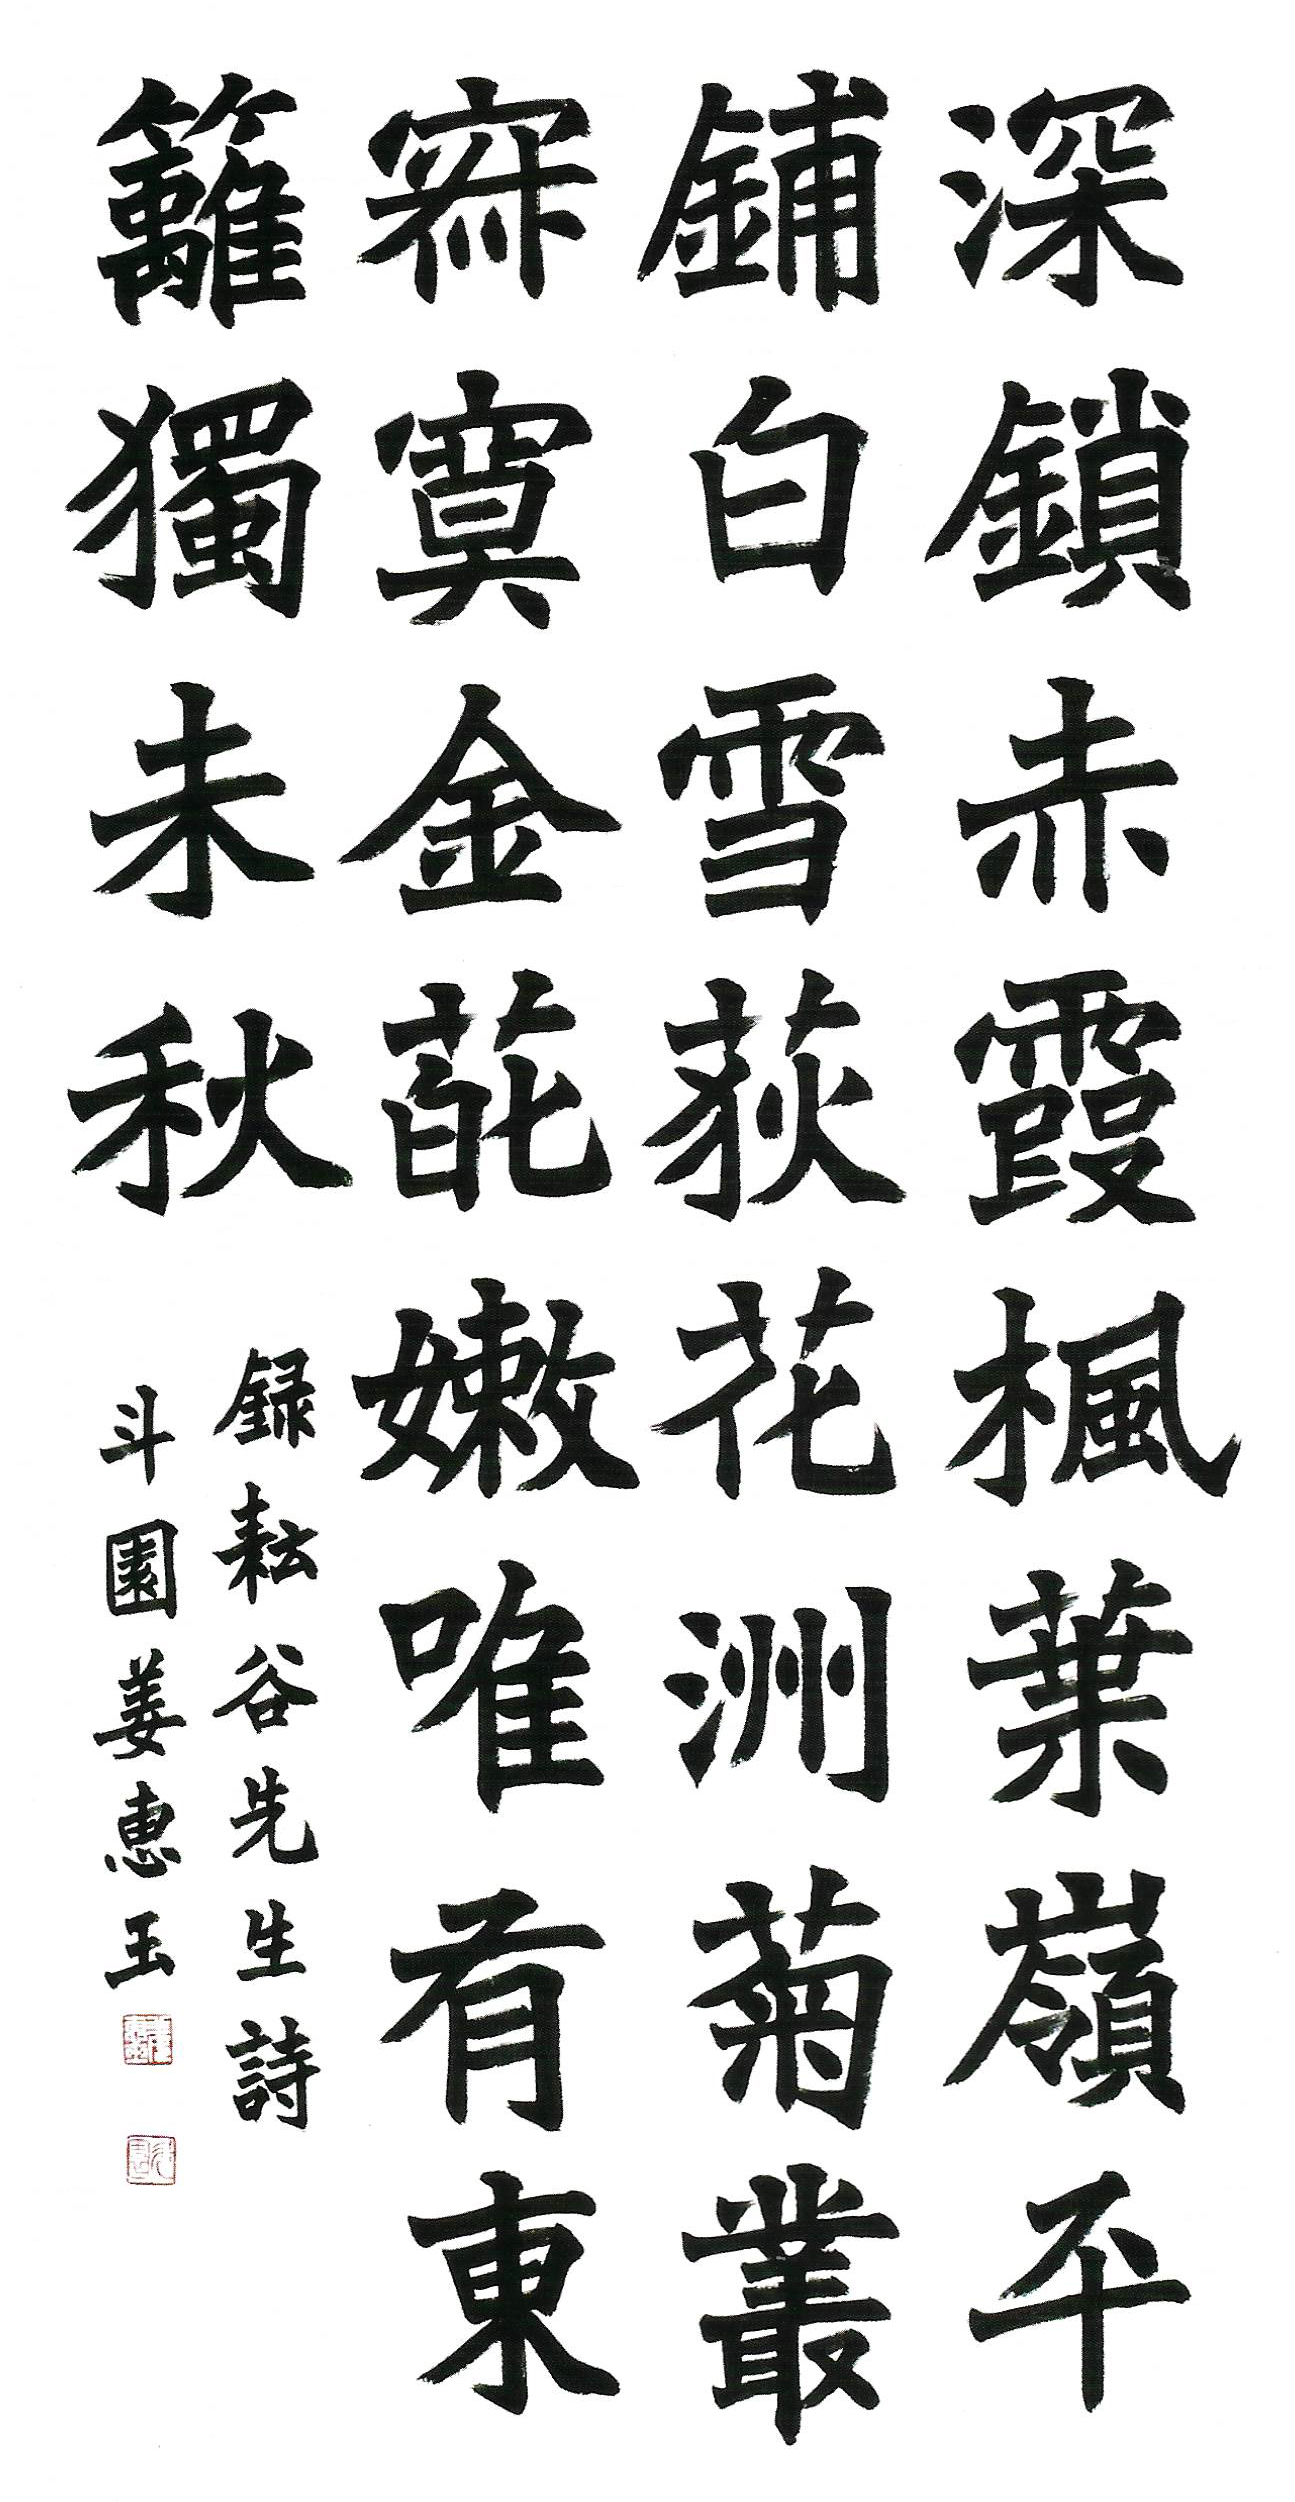 深鎖赤霞楓葉嶺平
鋪白雪荻花洲菊叢
寂寞金葩嫩唯有東
籬獨未秋
録耘谷先生詩
斗園姜惠玉